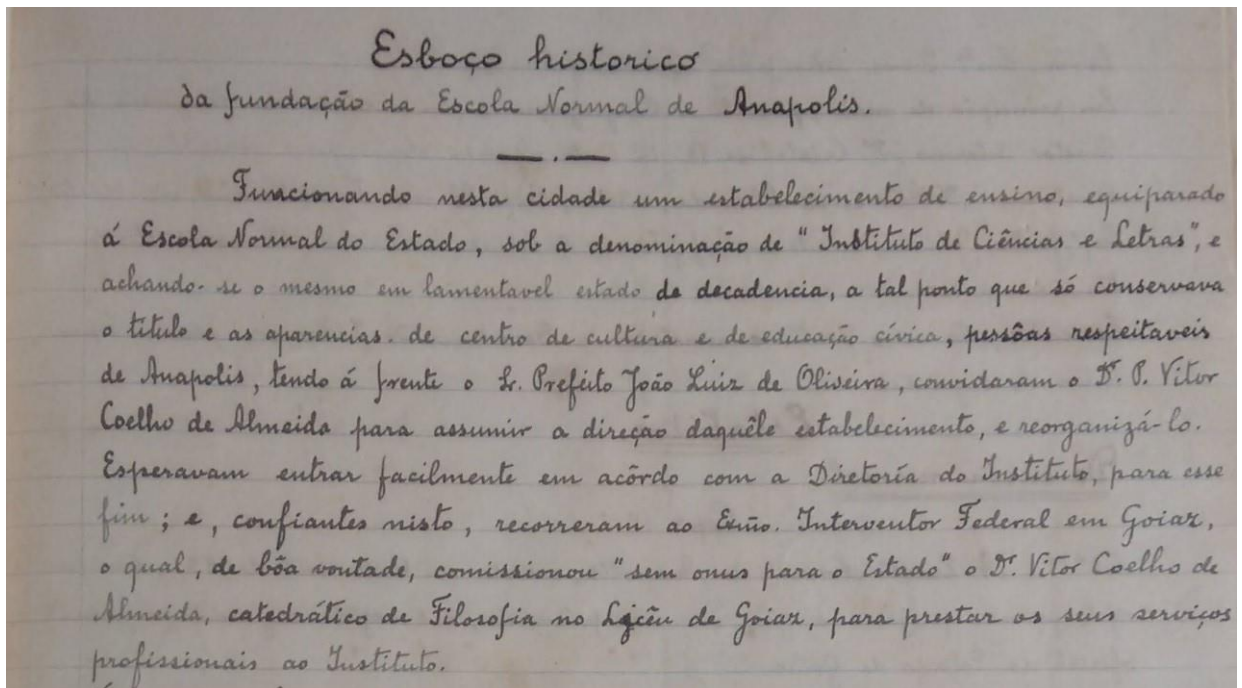 Esboço historico
da fundação da Escola Normal de Anapolis.
Funcionando nesta cidade um estabelecimento de ensino, equiparado
á Escola Normal do Estado, sob a denominação de "Instituto de Ciências e Letras", e
achando-se o mesmo em lamentavel estado de decadencia, a tal ponto que só conservava
o titulo e as aparencias. de centro de cultura e de educação cívica, pessôas respeitaveis
de Anapolis, tendo á frente o Sr. Prefeito João Luiz de Oliveira, convidaram o Dr. P. Vitor
Coelho de Almeida para assumir a direção daquêle estabelecimento, e reorganizá-lo.
Esperavam entrar facilmente em acôrdo com a Diretoría do Instituto, para esse
fim; e, confiantes nisto, recorreram ao Exmo. Interventor Federal em Goiaz,
o qual, de bôa vontade, comissionou "sem onus para o Estado" o Dr. Vitor Coelho de
Almeida, catedrático de Filosofia no Licêu de Goiaz, para prestar os seus serviços
profissionais ao Instituto.